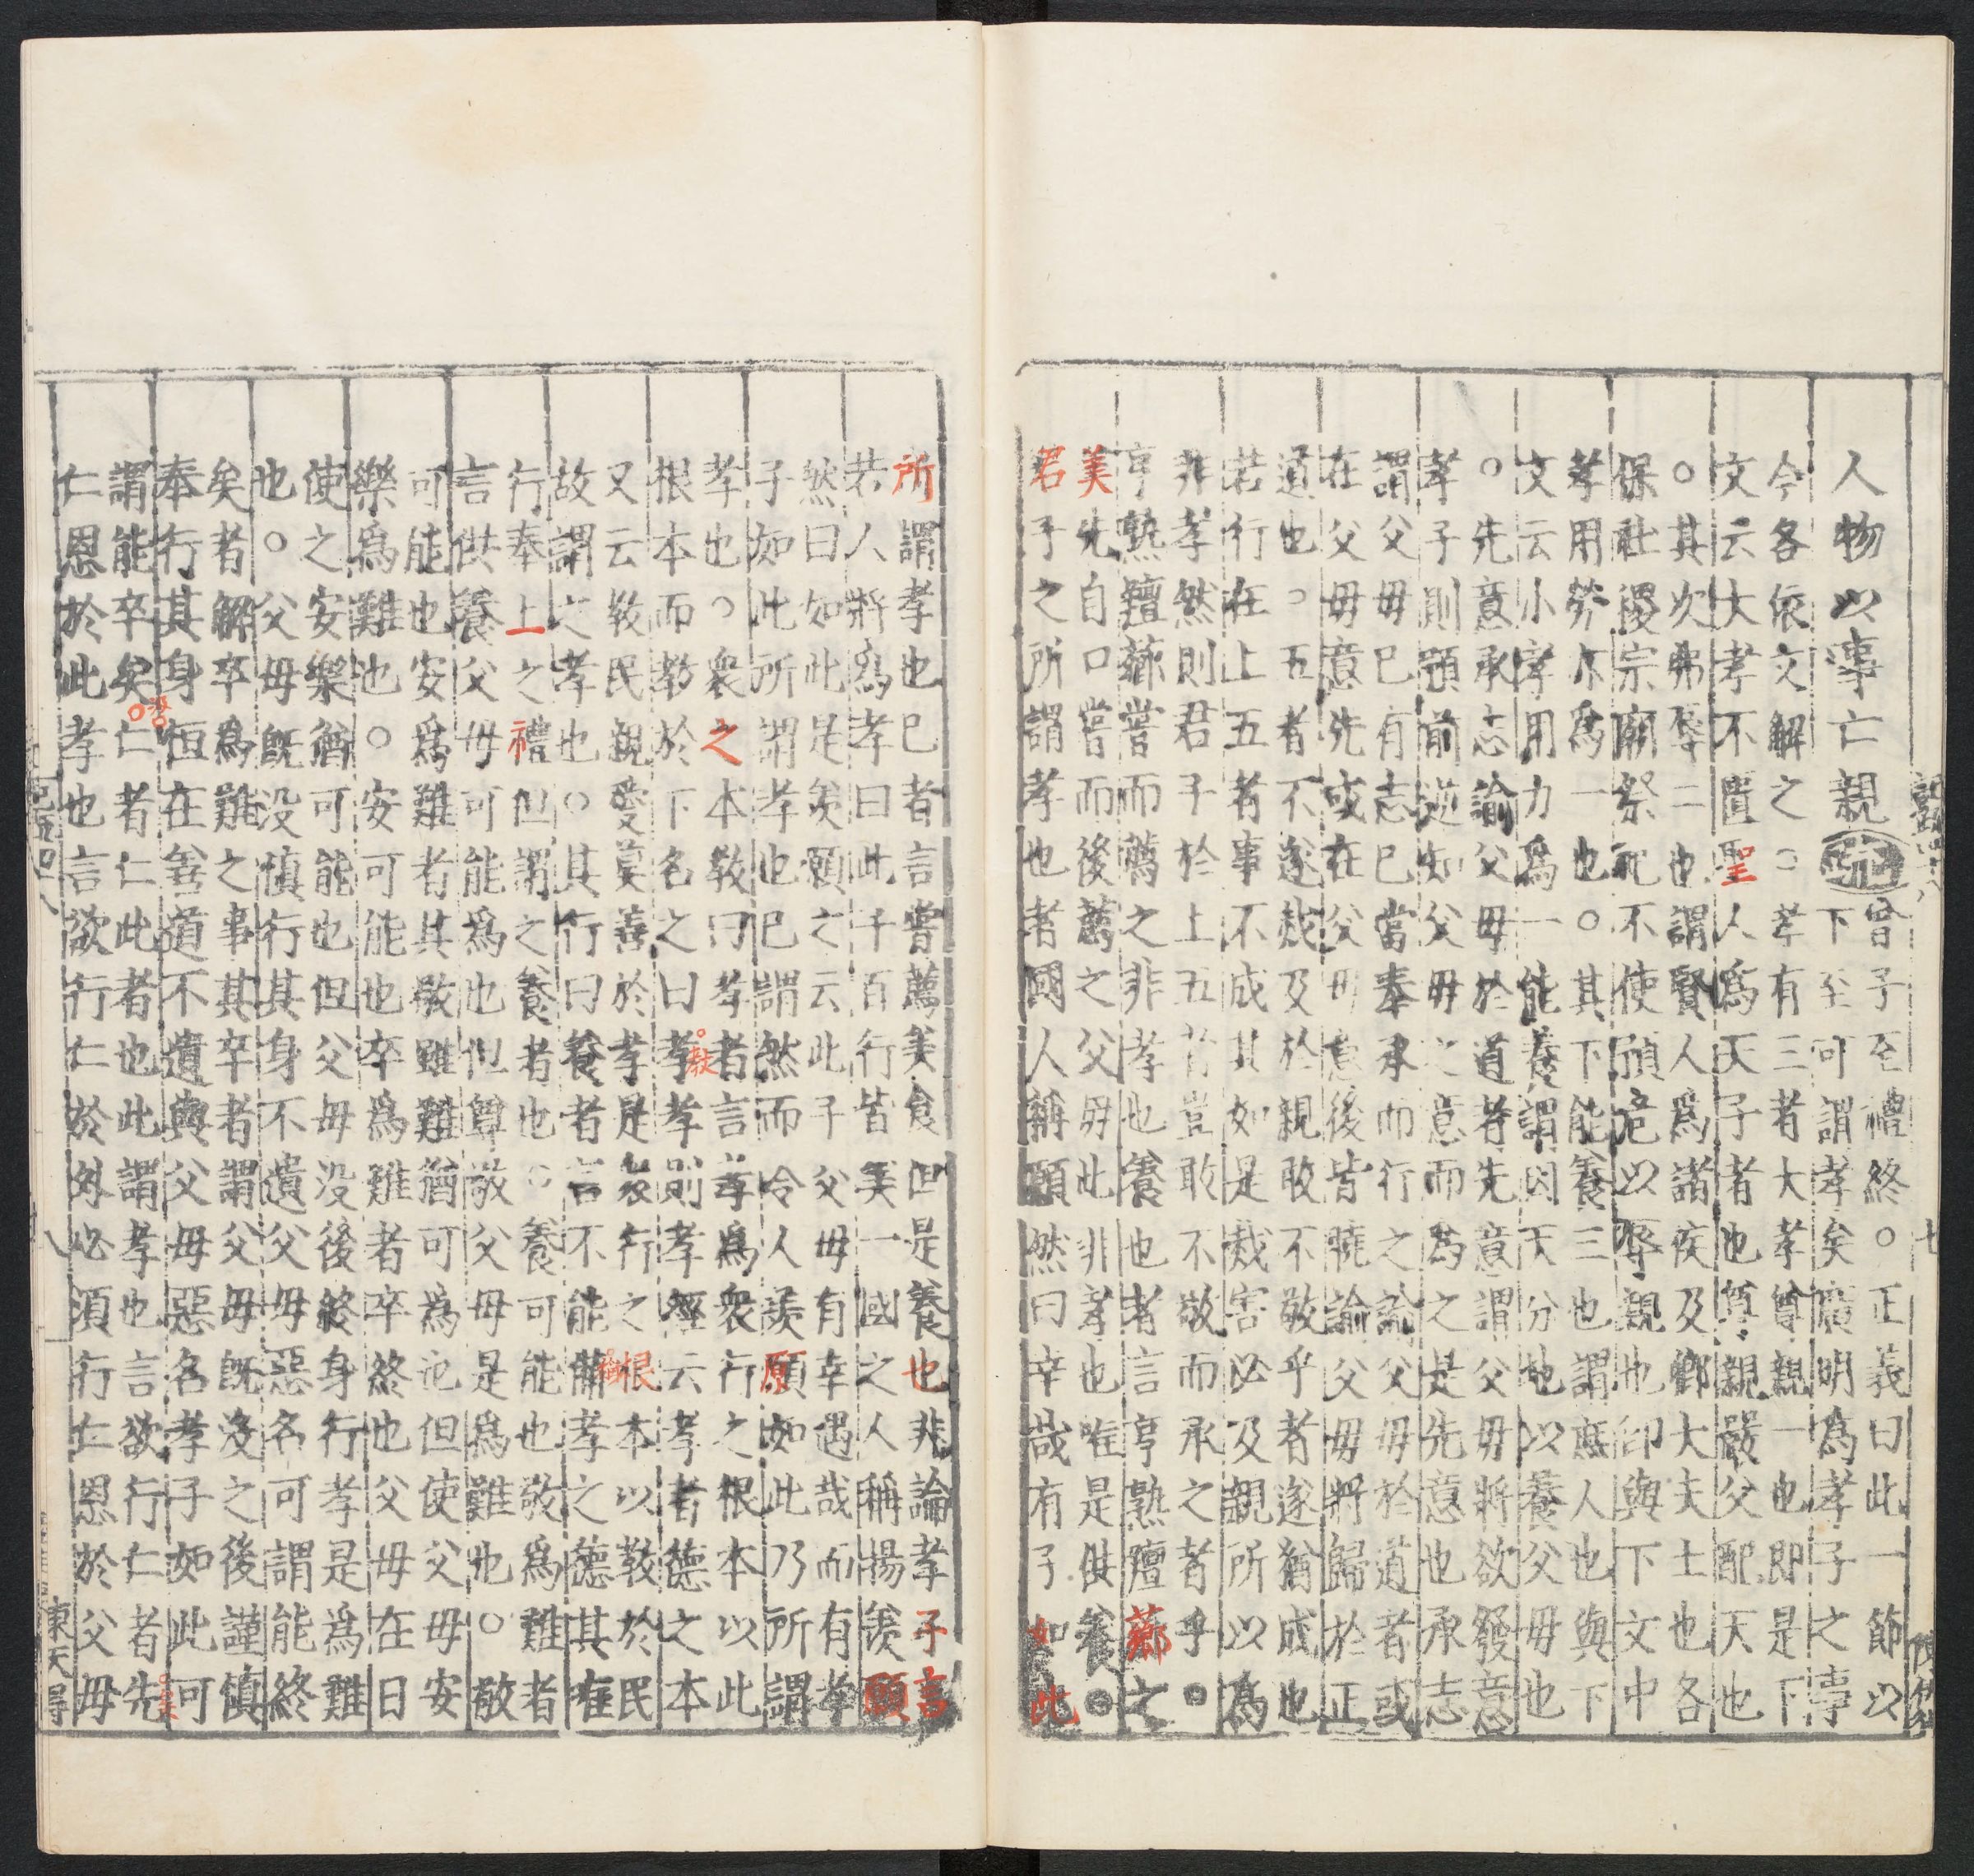 記疏四十八
七
人物以事亡親疏曾子至禮終○正義曰此一節以
下至可謂孝矣廣明爲孝子之事
今各依文解之○孝有三者大孝尊親一也即是下
文云大孝不匱聖人爲天子者也尊親嚴父配天也
○其次弗辱二也謂賢人爲諸侯及鄉大夫士也各
保社稷宗廟祭祀不使傾危以辱親也即與下文中
孝用勞亦爲一也○其下能養三也謂庶人也與下
文云小孝用力爲一能養謂因天分地以養父母也
○先意承志諭父母於道者先意謂父母將欲發意
孝子則預前逆知父母之意而爲之是先意也承志
謂父母已有志已當奉承而行之諭父母於道者或
在父母意先或在父母意後皆曉諭父母將歸於正
道也○五者不遂烖及於親敢不敬乎者遂猶成也
若行在上五者事不成其如是烖害必及親所以爲
非孝然則君子於上五者豈敢不敬而承之者乎○
亨熟羶薌嘗而薦之非孝也養也者言亨熟羶薌之
美先自口嘗而後薦之父母此非孝也唯是供養○
君子之所謂孝也者國人稱願然曰幸哉有子如此
所謂孝也已者言嘗薦美食但是養也非論孝子言
若人將爲孝曰此千百行皆美一國之人稱揚羨願
然曰如此是羨願之云此子父母有幸遇哉而有孝
子如此所謂孝也已謂然而令人羨願原如此乃所謂
孝也○衆之本教曰孝者言孝爲衆行之根本以此
根本而教於下名之曰孝教孝則孝經云孝者德之本
又云教民親愛莫善於孝是衆行之根本以教於民
故謂之孝也○其行曰養者言不能備孝之德其在
行奉上之禮但謂之養者也○養可能也敬爲難者
言供養父母可能爲也但尊敬父母是爲難也○敬
可能也安爲難者其敬雖難猶可爲也但使父母安
樂爲難也○安可能也卒爲難者卒終也父母在日
使之安樂猶可能也但父母没後終身行孝是爲難
也○父母既没慎行其身不遺父母惡名可謂能終
矣者解卒爲難之事其卒者謂父母既没之後謹慎
奉行其身恒在善道不遺與父母惡名孝子如此可
謂能卒矣○仁者仁此者也此謂孝也言欲行仁者先
仁恩於此孝也言欲行仁於外必須行仁恩於父母
八
陳天得